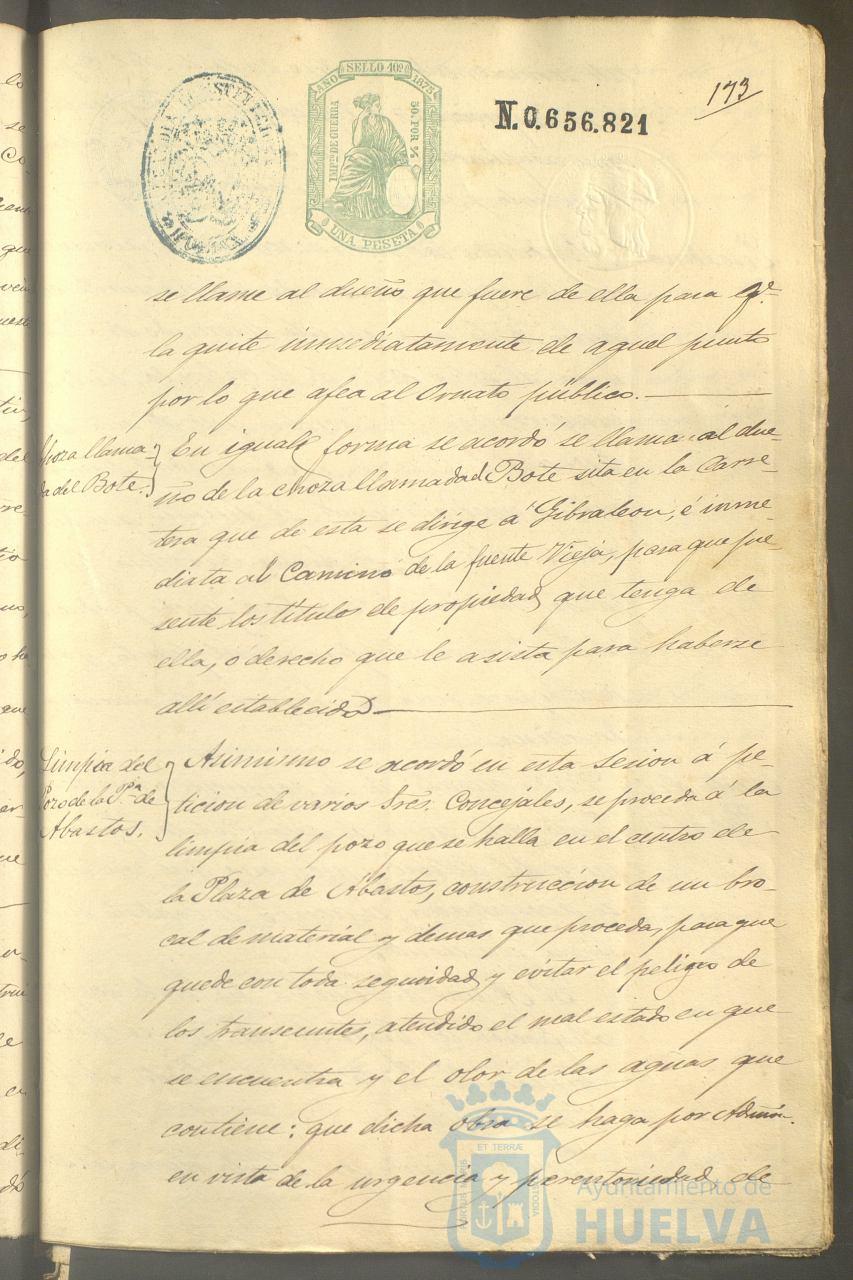 173
AÑO SELLO 10º 1875
IMPTO DE GUERRA
50. POR %
UNA PESETA
N.0.656.821
se llame al dueño que fuere de ella para qe.
la quite inmediatamente de aquel punto
por lo que afea al Ornato público.
Choza llama-
da del Bote.
En igual forma se acordó se llama al due-
ño de la choza llamada del Bote sita en la Carre-
tera que de esta se dirige á Gibraleon, é inme-
diata al Camino de la fuente Vieja, para que pre-
sente los títulos de propiedad que tenga de
ella, o derecho que le asista para haberse
allí establecido
Limpia del
Pozo de la Pza. de
Abastos.
Asimismo se acordó en esta sesion á pe-
ticion de varios Sres. Concejales, se proceda á la
limpia del pozo que se halla en el centro de
la Plaza de Abastos, construccion de un bro-
cal de material y demas que proceda, para que
quede con toda seguridad y evitar el peligro de
los transeuntes, atendido el mal estado en que
se encuentra y el olor de las aguas que
contiene: que dicha obra se haga por Admón.
en vista de la urgencia y perentoriedad de
Ayuntamiento de
HUELVA
PORTUS MARIS ET TERRÆ CUSTODIA